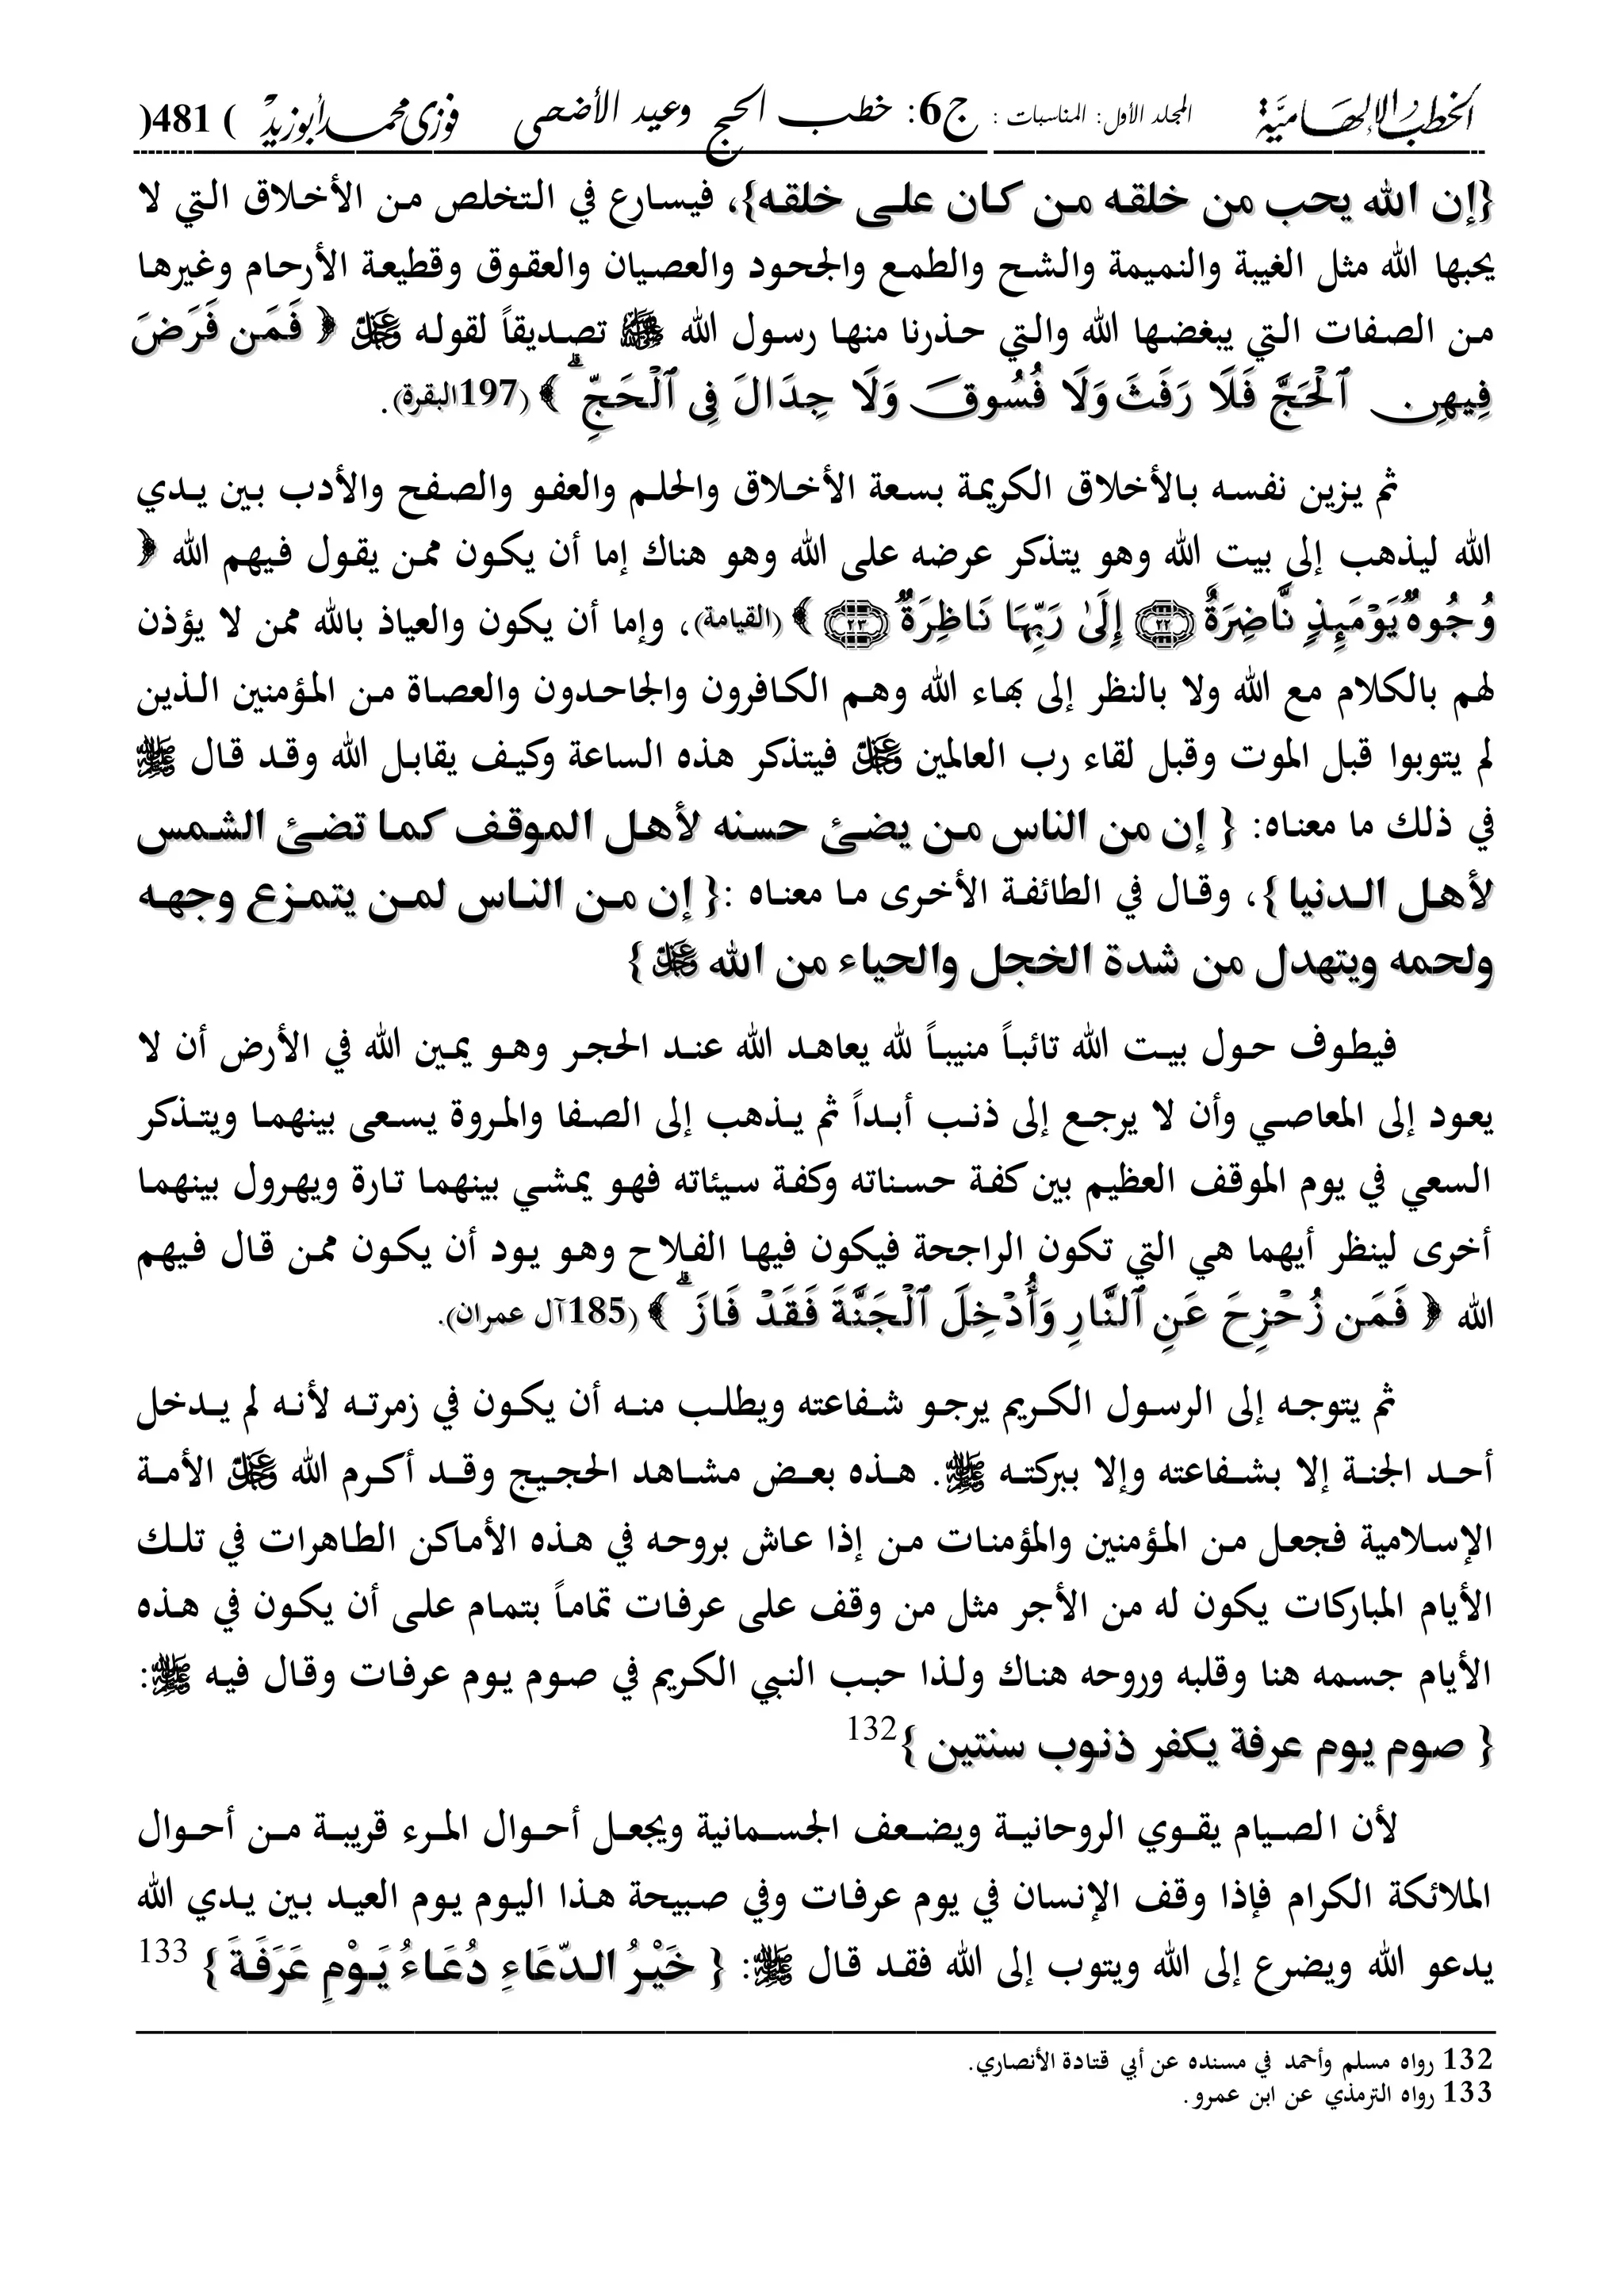 الخطب الإلهامية المجلد الأول: المناسبات : ج6: خطب الحج وعيد الأضحى فوزى محمد أبوزيد (481)
{إن الله يحب من خلقه من كان على خلقه}، فيسارع في التخلص من الأخلاق التي لا
يحبها الله مثل الغيبة والنميمة والشح والطمع والجحود والعصيان والعقوق وقطيعة الأرحام وغيرها
من الصفات التي يبغضها الله والتي حذرنا منها رسول الله ﷺ تصديقاً لقوله عز وجل ﴿ فَمَن فَرَضَ
فِيهِنَّ ٱلْحَجَّ فَلَا رَفَثَ وَلَا فُسُوقَ وَلَا جِدَالَ فِى ٱلْحَجِّ ۗ ﴾ (197البقرة).
ثم يزين نفسه بالأخلاق الكريمة بسعة الأخلاق والحلم والعفو والصفح والأدب بين يدي
الله ليذهب إلى بيت الله وهو يتذكر عرضه على الله وهو هناك إما أن يكون ممن يقول فيهم الله ﴿
وُجُوهٌ يَوْمَئِذٍ نَّاضِرَةٌ ﴿٢٢﴾ إِلَىٰ رَبِّهَا نَاظِرَةٌ ﴿٢٣﴾ ﴾ (القيامة)، وإما أن يكون والعياذ بالله ممن لا يؤذن
لهم بالكلام مع الله ولا بالنظر إلى بهاء الله وهم الكافرون والجاحدون والعصاة من المؤمنين الذين
لم يتوبوا قبل الموت وقبل لقاء رب العالمين عز وجل فيتذكر هذه الساعة وكيف يقابل الله وقد قال ﷺ
في ذلك ما معناه: { إن من الناس من يضئ حسنه لأهل الموقف كما تضئ الشمس
لأهل الدنيا }، وقال في الطائفة الأخرى ما معناه :{ إن من الناس لمن يتمزع وجهه
ولحمه ويتهدل من شدة الخجل والحياء من الله عز وجل }
فيطوف حول بيت الله تائباً منيباً لله يعاهد الله عند الحجر وهو يمين الله في الأرض أن لا
يعود إلى المعاصي وأن لا يرجع إلى ذنب أبداً ثم يذهب إلى الصفا والمروة يسعى بينهما ويتذكر
السعي في يوم الموقف العظيم بين كفة حسناته وكفة سيئاته فهو يمشي بينهما تارة ويهرول بينهما
أخرى لينظر أيهما هي التي تكون الراجحة فيكون فيها الفلاح وهو يود أن يكون ممن قال فيهم
الله ﴿ فَمَن زُحْزِحَ عَنِ ٱلنَّارِ وَأُدْخِلَ ٱلْجَنَّةَ فَقَدْ فَازَ ۗ ﴾ (185آل عمران).
ثم يتوجه إلى الرسول الكريم يرجو شفاعته ويطلب منه أن يكون في زمرته لأنه لم يدخل
أحد الجنة إلا بشفاعته وإلا ببركته ﷺ. هذه بعض مشاهد الحجيج وقد أكرم الله عز وجل الأمة
الإسلامية فجعل من المؤمنين والمؤمنات من إذا عاش بروحه في هذه الأماكن الطاهرات في تلك
الأيام المباركات يكون له من الأجر مثل من وقف على عرفات تماماً بتمام على أن يكون في هذه
الأيام جسمه هنا وقلبه وروحه هناك ولذا حبب النبي الكريم في صوم يوم عرفات وقال فيه ﷺ:
{ صوم يوم عرفة يكفر ذنوب سنتين }132
لأن الصيام يقوي الروحانية ويضعف الجسمانية ويجعل أحوال المرء قريبة من أحوال
الملائكة الكرام فإذا وقف الإنسان في يوم عرفات وفي صبيحة هذا اليوم يوم العيد بين يدي الله
يدعو الله ويضرع إلى الله ويتوب إلى الله فقد قال ﷺ: { خَيْرُ الدّعَاءِ دُعَاءُ يَوْمِ عَرَفَةَ } 133
132 رواه مسلم وأحمد في مسنده عن أبي قتادة الأنصاري.
133 رواه الترمذي عن ابن عمرو.